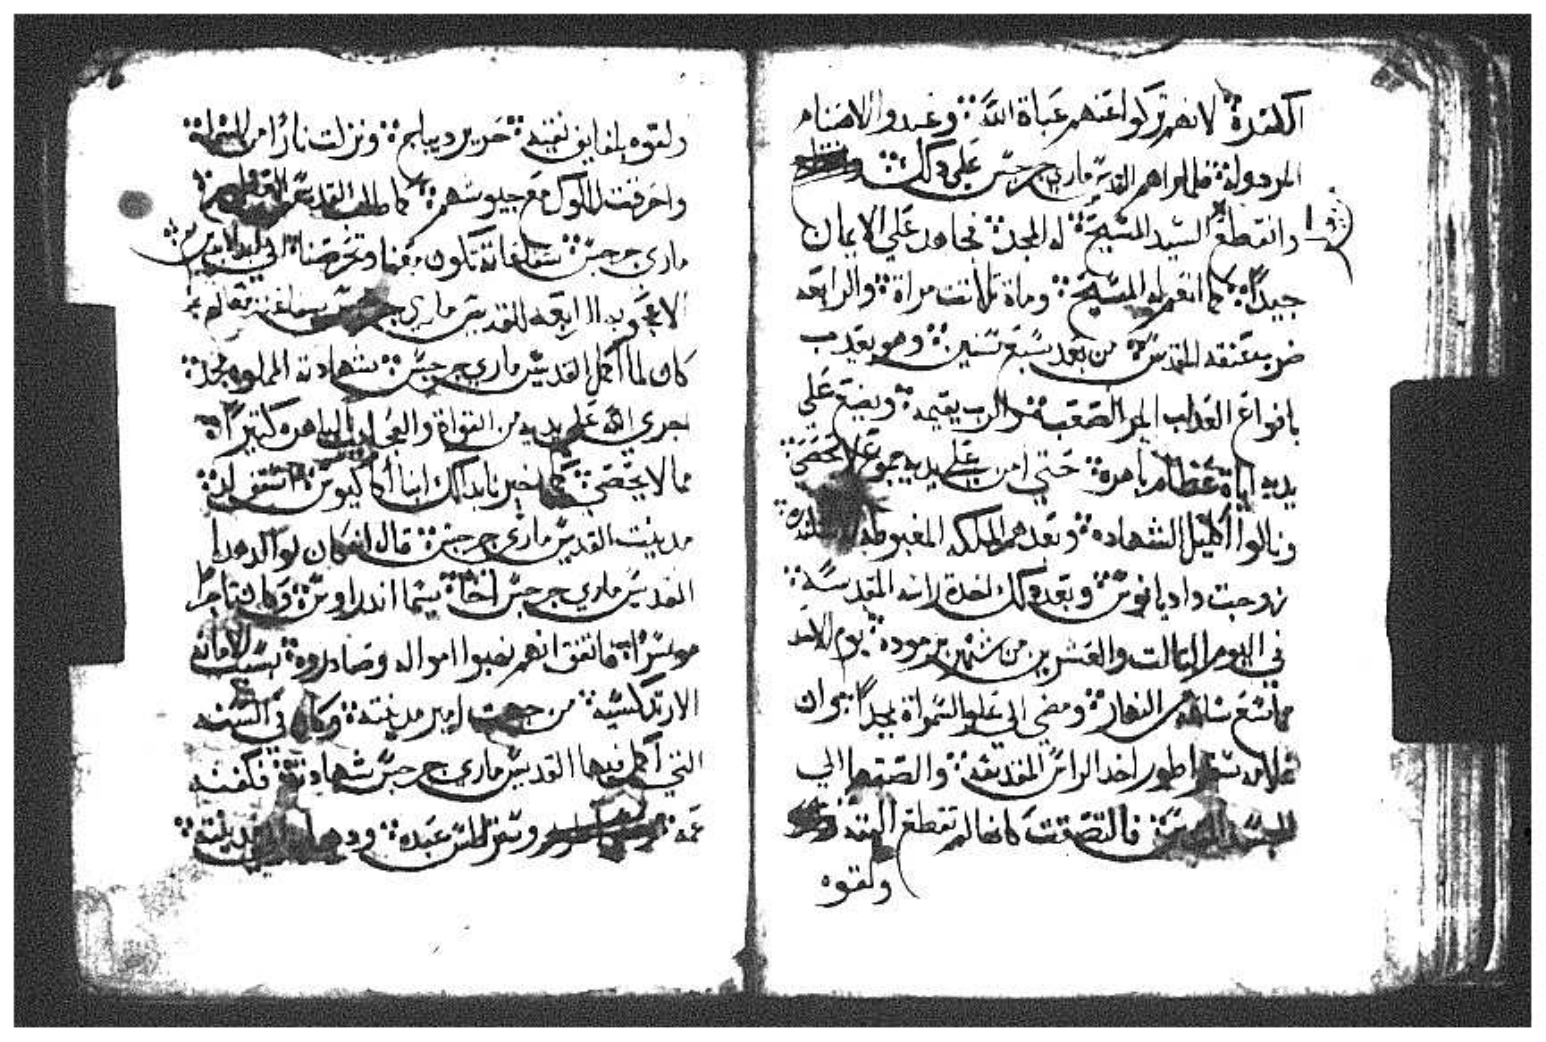 الكفرة لانهم تركوا عنهم عباة الله وعبدوا الاصنام
المردولة فلما راهم القديس ماري جرجس علي دلك
وانقطع السيد المسيح له المجد فجاهد علي الايمان
جيدًا كما انعم له المسيح ومات تلاتت مراة والرابعه
ضربت عنقه المقدسه من بعد سبع سنين وهو يعدب
بانواع العداب المر الصعبة والرب يقيمه ويضع علي
يديه اياة عظام باهرة حتي امن علي يديه جموع لا تحصي
ونالوا أكليل الشهاده وبعدهم الملكه المغبوطه
زوجت داديانوس وبعد دلك اخدة راسه المقدسة
في اليوم التالت والعشرين من شهر برموده يوم الاحد
في تسع ساعة من النهار ومضي الي علو السمواة
اخد الراس المقدسه والصقها الي
الجسد فالتصقت كانها لم تقطع البته
ولفوه
ولفوه بلفايف نقيه حرير ديباج ونزلت نارًا من السما
واحرقت الملوك مع جيوسهم كما طلب القديس العظيم
ماري جرجس شفاعاته تكون معنا وتحرصنا الي ابد الابدين
الاعجوبه الرابعه للقديس ماري جرجس
كان لما أكمل القديس ماري جرجس شهادته المملوه مجد
اجري الله علي يديه من القواة والعجايب الباهره كتيرًا
مما لا يحصي كما خبرنا بدلك انبا أسقف لد
مدينت القديس ماري جرجس قال انه كان لوالد هدا
القديس ماري جرجس اخًا يسما اندراوس وكان تاجرًا
موسرًا فاتفق انهم نهبوا امواله وصادروه بسبب الامانه
الارتدكسيه من جهت امير مدينته وكان في السنه
التي أكمل فيها القديس ماري جرجس شهادته فكفنه
عمه وسقراطس عبده